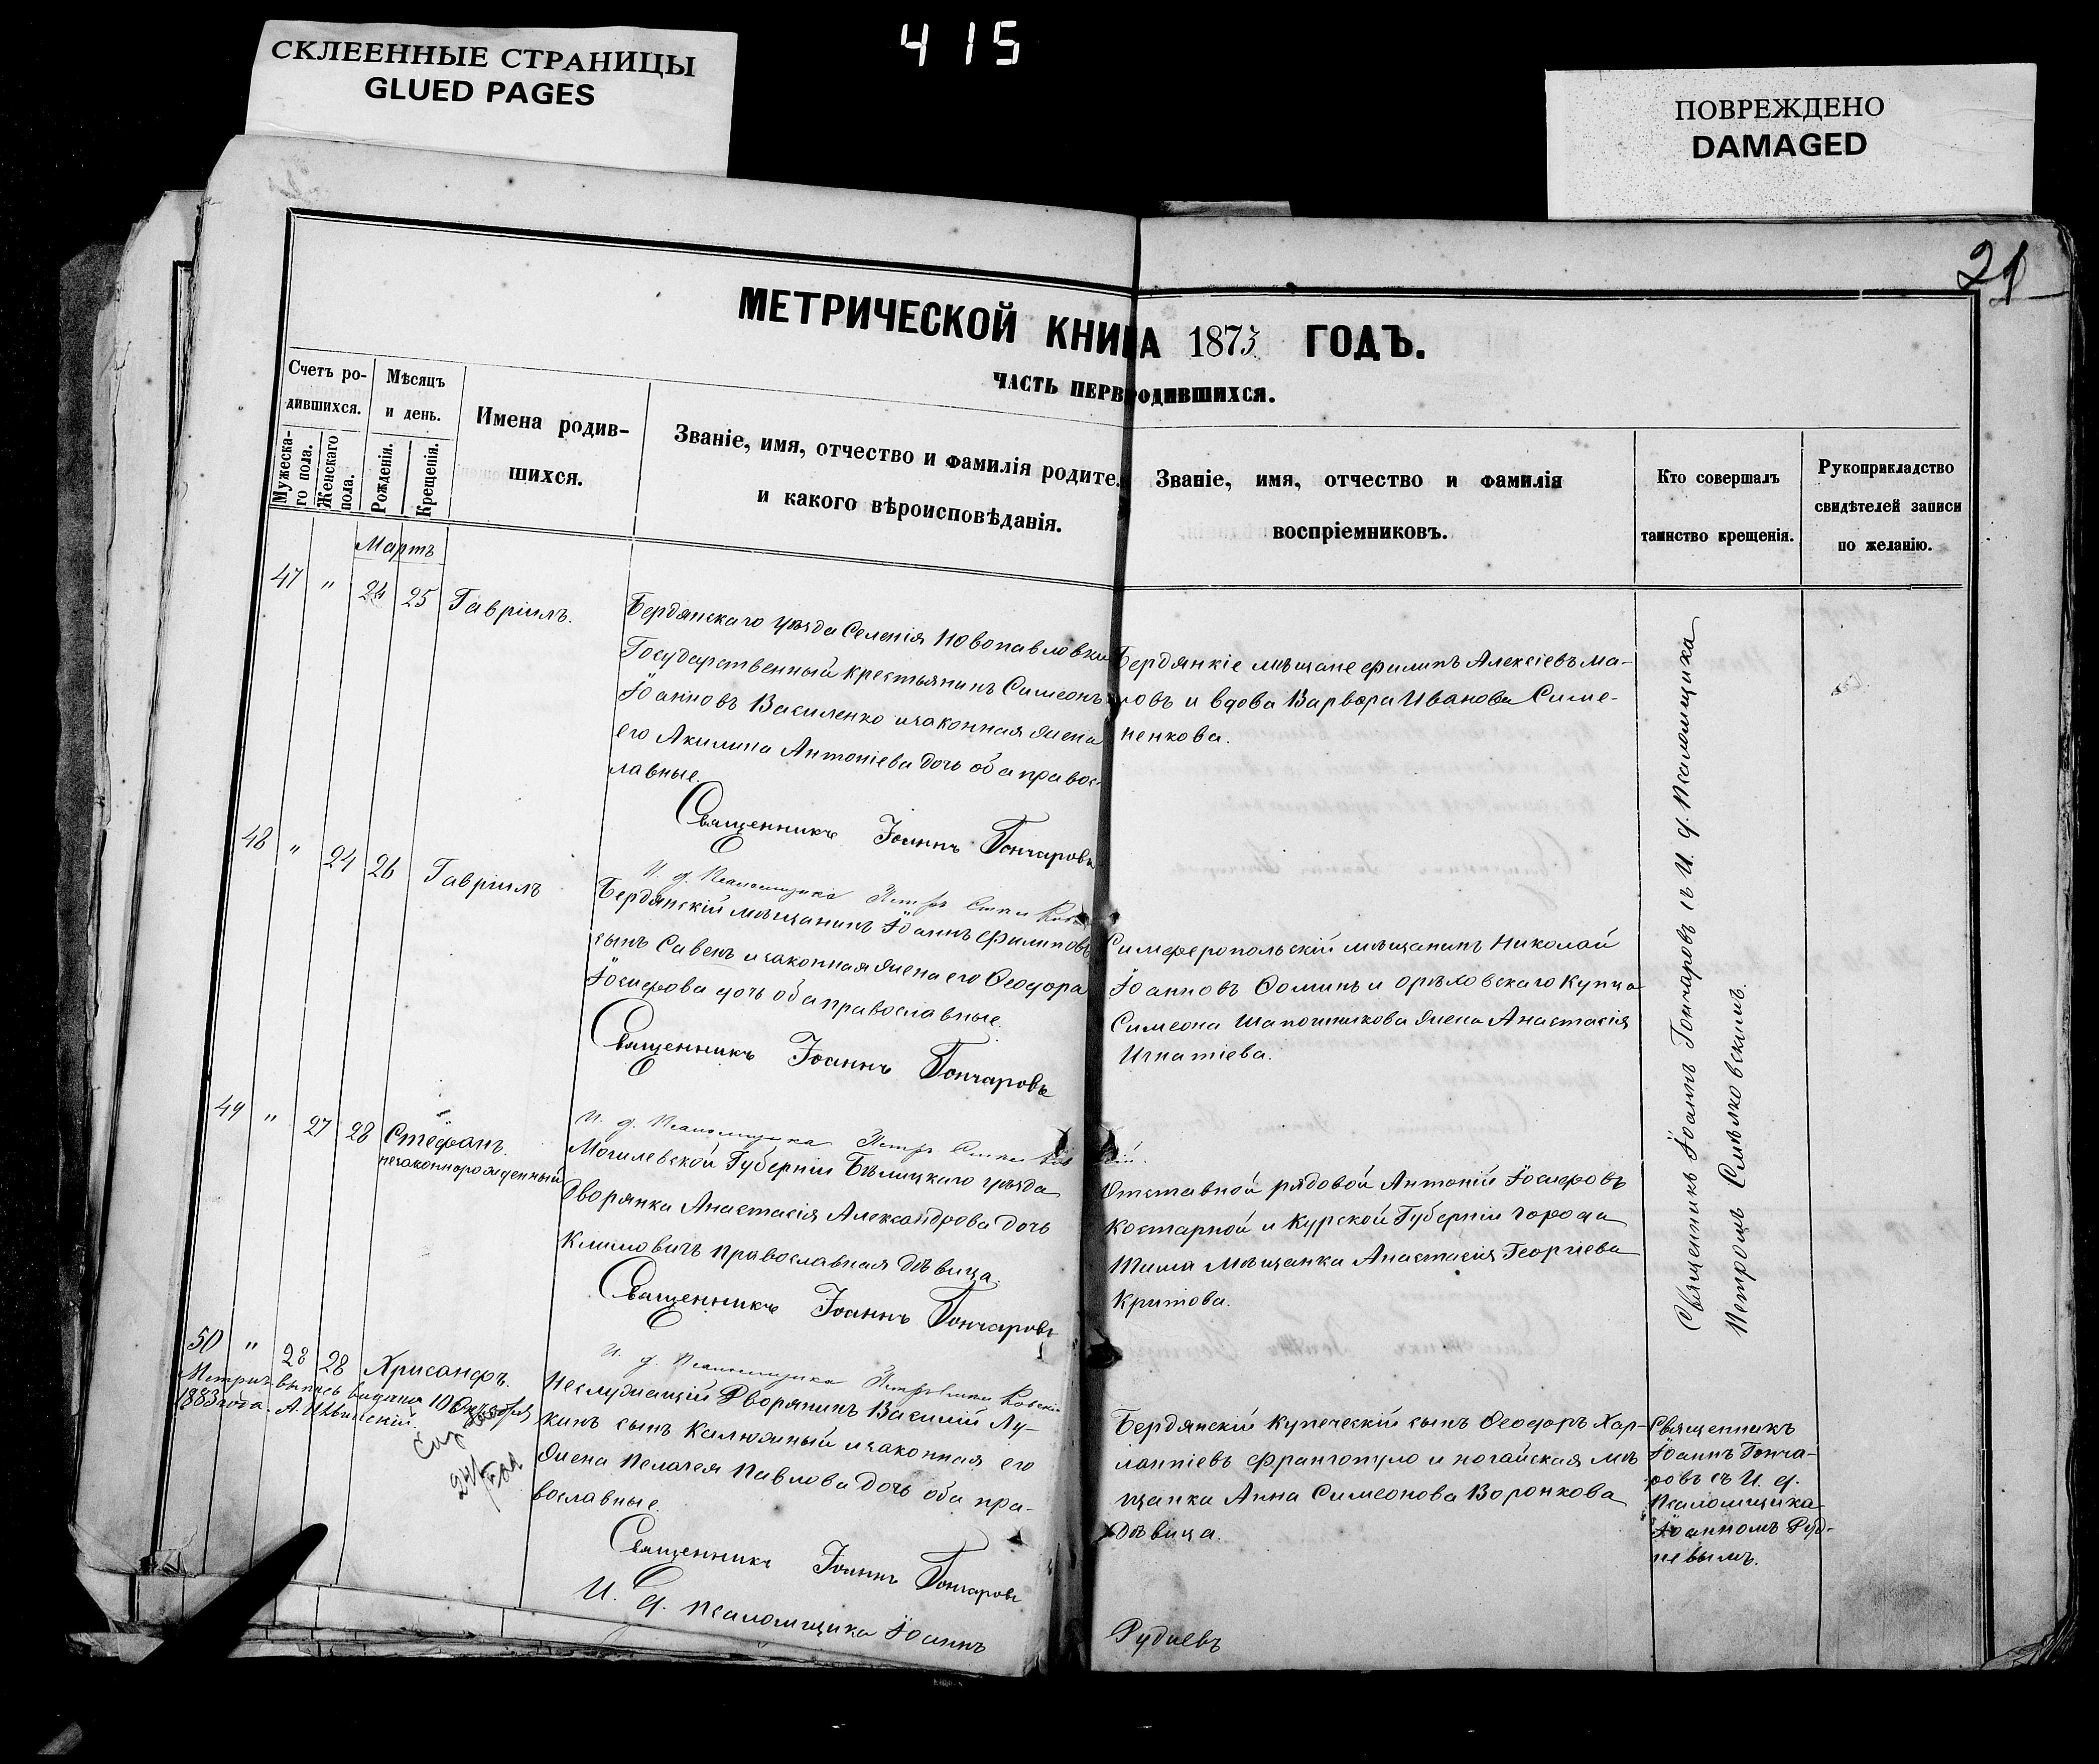 СКЛЕЕННЫЕ СТРАНИЦЫ
GLUED PAGES
415
ПОВРЕЖДЕНО
DAMAGED
21
МЕТРИЧЕСКОЙ КНИГА 1873 ГОДЪ.
ЧАСТЬ ПЕРВ РОДИВШИХСЯ.
Счетъ ро-
дившихся.
Мужеска-
го пола.
Женскаго
пола.
Мѣсяцъ
и день.
Рожденія.
Крещенія.
Имена родив-
шихся.
Званіе, имя, отчество и фамилія родите
и какого вѣроисповѣданія.
Званіе, имя, отчество и фамилія
воспріемниковъ.
Кто совершалъ
таинство крещенія.
Рукоприкладство
свидѣтелей записи
по желанію.
Мартъ
47 " 24 25 Гавріилъ.
Бердянскаго уѣзда Селенія Новопавловки
Государственный крестьянинъ Симеонъ
Іоанновъ Василенко и законная жена
его Акилина Антоніева дочь оба правос-
лавные.
Священникъ Іоаннъ Гончаровъ
И. д. Псаломщика Петръ
Бердянкіе мѣщане Филипъ Алексіевъ Ма-
ровъ и вдова Варвара Иванова Симе-
ненкова.
48 " 24 26 Гавріилъ
Бердянскій мѣщанинъ Іоаннъ Филиповъ
сынъ Савенъ и законная жена его Ѳеодора
Іосифова дочь оба православные.
Священникъ Іоаннъ Гончаровъ
И. д. Псаломщика Петръ
Симферопольскій мѣщанинъ Николай
Іоанновъ Ѳоминъ и орѣховскаго купца
Симеона Шапошникова жена Анастасія
Игнатіева.
49 " 27 28 Стефанъ.
незаконнорожденный
Могилевской Губерніи Бѣлицкаго уѣзда
Дворянка Анастасія Александрова дочь
Климовичъ православная дѣвица.
Священникъ Іоаннъ Гончаровъ
И. д. Псаломщика
Отставной рядовой Антоній Іосифовъ
Костарной и Курской Губерніи города
Тима мѣщанка Анастасія Георгіева
Критова.
Священникъ Іоаннъ Гончаровъ съ И. д. Псаломщика
Петромъ Смѣлковскимъ.
50 " 28 28 Хрисанфъ.
Метрич. выпись выдана 10 Октября
1883 года. А.
Неслужащій Дворянинъ Василій Лу-
кинъ сынъ Калюжный и законная его
жена Пелагея Павлова дочь оба пра-
вославные.
Священникъ Іоаннъ Гончаровъ
И. д. псаломщика Іоаннъ
Рудневъ
Бердянскій купеческій сынъ Ѳеодоръ Хар-
лампіевъ Франгопуло и ногайская мѣ
щанка Анна Симеонова Воронкова
дѣвица.
Священникъ
Іоаннъ Гонча-
ровъ съ И. д.
Псаломщика
Іоанномъ Руд-
невымъ.